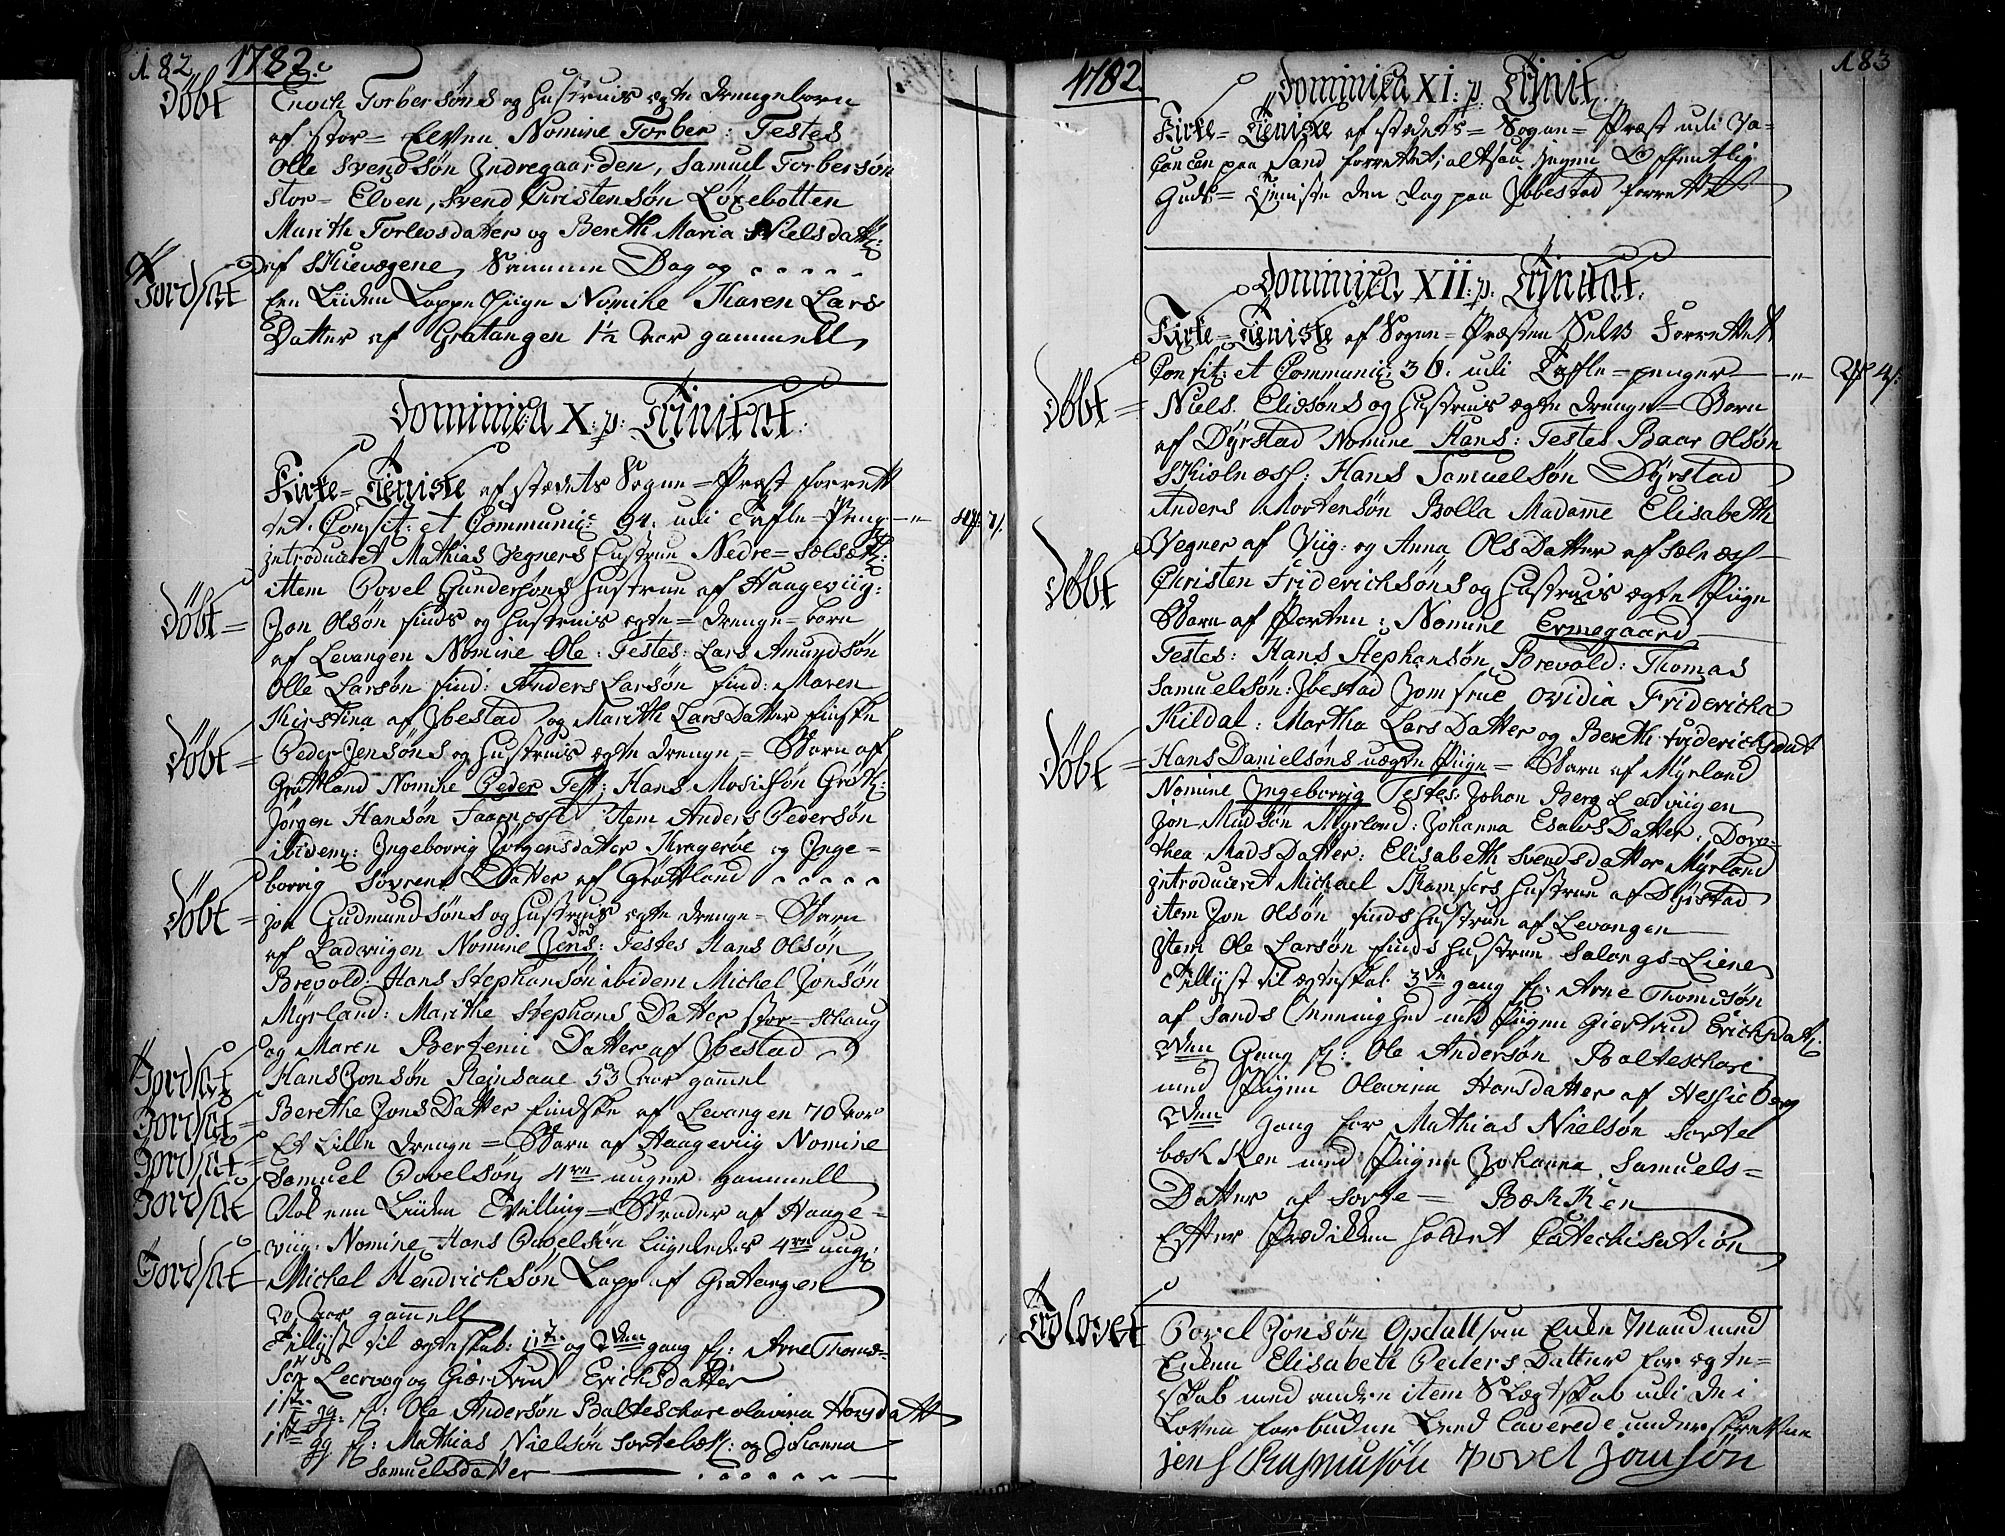 182 1782.
Døbt Enoch Torbersøns og Hustrues ægte Drengeborn
af Stor= Elven Nomine Torber: Testes
Olle Svendsøn Indregaarden, Samuel Torbersøn
Stor= Elven, Svend Christensøn Løxebotten
Marith Torlevsdatter og Bereth Maria Nielsdatt:
af Skievogene, Samme Dag og
Jordsat Een Liiden Lappe Piige Nomine Karen Lars
Datter af Gratangen 1½ Aar gammell
Dominica X: p: Trinitat:
Kirke=Tieniste af stædets Sogne=Præst forrett
tet. Confit: et Communic: 94. udi Tafle=Peng
Introduceret Mathias Vegners Hustrue Nedre=Sælsæt:
ittem Povel Gundersøns Hustrue af Haageviig:
Døbt= Jon Olsøn Finds og Hustrues ægte=Drenge=born
af Levangen Nomine Ole: Testes: Lars Amundsøn
Olle Larsøn Find: Anders Larsøn Find: Maren
Kirstina af Ibestad og Marith LarsDatter Finske
Døbt= Peder Jensøns og Hustrues ægte Drenge=Barn af
Grøttland Nomine Peder Test: Hans Mosisøn Grøtl:
Jørgen Hansøn Item Anders Pedersøn
ibidem: Ingeborrig Jørgensdatter Kragerøe og Inge=
borrig Sørrens Datter af Grøttland
Døbt= Jon Gudmundsøns og Hustrues ægte Drenge=Barn
af Ladeviigen Nomine Jens: død Testes Hans Olsøn
Brevold: Hans Stephansøn ibidem Michel Jonsøn
Myrland: Marithe Stephans Datter Stor=Schaug
og Maren Bertenii Datter af Ibestad
Jordsat Hans Jonsøn Reinsaae 53 Aar gamel
Jordsat= Berethe Jons Datter Findske af Levangen 70 Aar
Jordsat= Et Lille Drenge=Barn af Haageviig Nomine
Samuel Povelsøn 4re uuger gammell
Jordsat Nok enn Liiden Tvilling=Broder af Haage=
viig: Nomine Hans Povelsøn liigeledes 4re uug:
Jordsat Michel Hendrichsøn Lapp af Gratangen
20 Aar gamell
Tillyst til ægteskab: 1ste og 2den gang f: Arne Thomæ=
Søn og Giertrud ErichsDatter
1ste gg. f: Ole Andersøn Balteschare Olavina Hansdatt
1ste gg. f: Mathias Nielsøn Sortebæk: og Johanna
Samuelsdatter
1782 183
Dominica XI: p: Trinit.
Kirke=Tieniste af stædets=Sogne=Præst udi Va=
cancen paa Sand forrettet, altsaa ingen Offentlig
Guds=Tieniste den Dag paa Ibbestad forrettet
Dominica XII: p: Trinitat.
Kirke=Tieniste af Sogne=Præsten Selv Forrettett
Confit: et Communic: 36. udi Tafle=penger
Døbt= Niels Eliesøns og Hustrues ægte Drenge=Barn
af Dyrstad Nomine Hans: Testes Baar Olsøn
Skiolnæss: Hans Samuelsøn Dyrstad
Anders Mortensøn Bolla Madame Elisabeth
Vegner af Viig: og Anna OlsDatter af Selnæss
Døbt Christen Friderichsøns og Hustrues ægte Piige
Barn af Porten: Nomine Ermegaard
Testes: Hans Stephansøn Brevold: Thomas
Samuelsøn: Ibestad Jomfrue Ovidia Fridericha
Kildal: Martha LarsDatter og Bereth Friderichsdatt
Døbt= Hans Danielsøns uægte Piige=Barn af Myrland
Nomine Ingeborrig Testes: Johan Berg Ladviigen
Jon Madsøn Myrland: Johanna EsausDatter: Doro=
thea MadsDatter: Elisabeth Svendsdatter Myrland
Introduceret Michael Hustrue af Dyrstad
item Jon Olsøn Finds Hustrue af Levangen
Item Ole Larsøn Finds Hustrue Salangs=Liene
Tillyst til ægteskab 3de gang f: Arne Thomesøn
af Sands Menighed med Piigen Giertrud Erichsdatt:
2den Gang f: Ole Andersøn Balteschare
med Piigen Olavina Hansdatter af Hessieberg
2den Gang for Mathias Nielsøn Sorte
bækken med Piigen Johanna Samuels=
Datter af Sorte=Bækken
Efter Prædikken holdet Catechisation
Trolovet Povel Jonsøn Opdall Enke Mand med
Enken Elisabeth PedersDatter for ægte=
skab med anden item Slægtskab udi de i
Loven forbudne Leed Caverede underskrevne
Jens Rasmusøn Povel Jonsøn